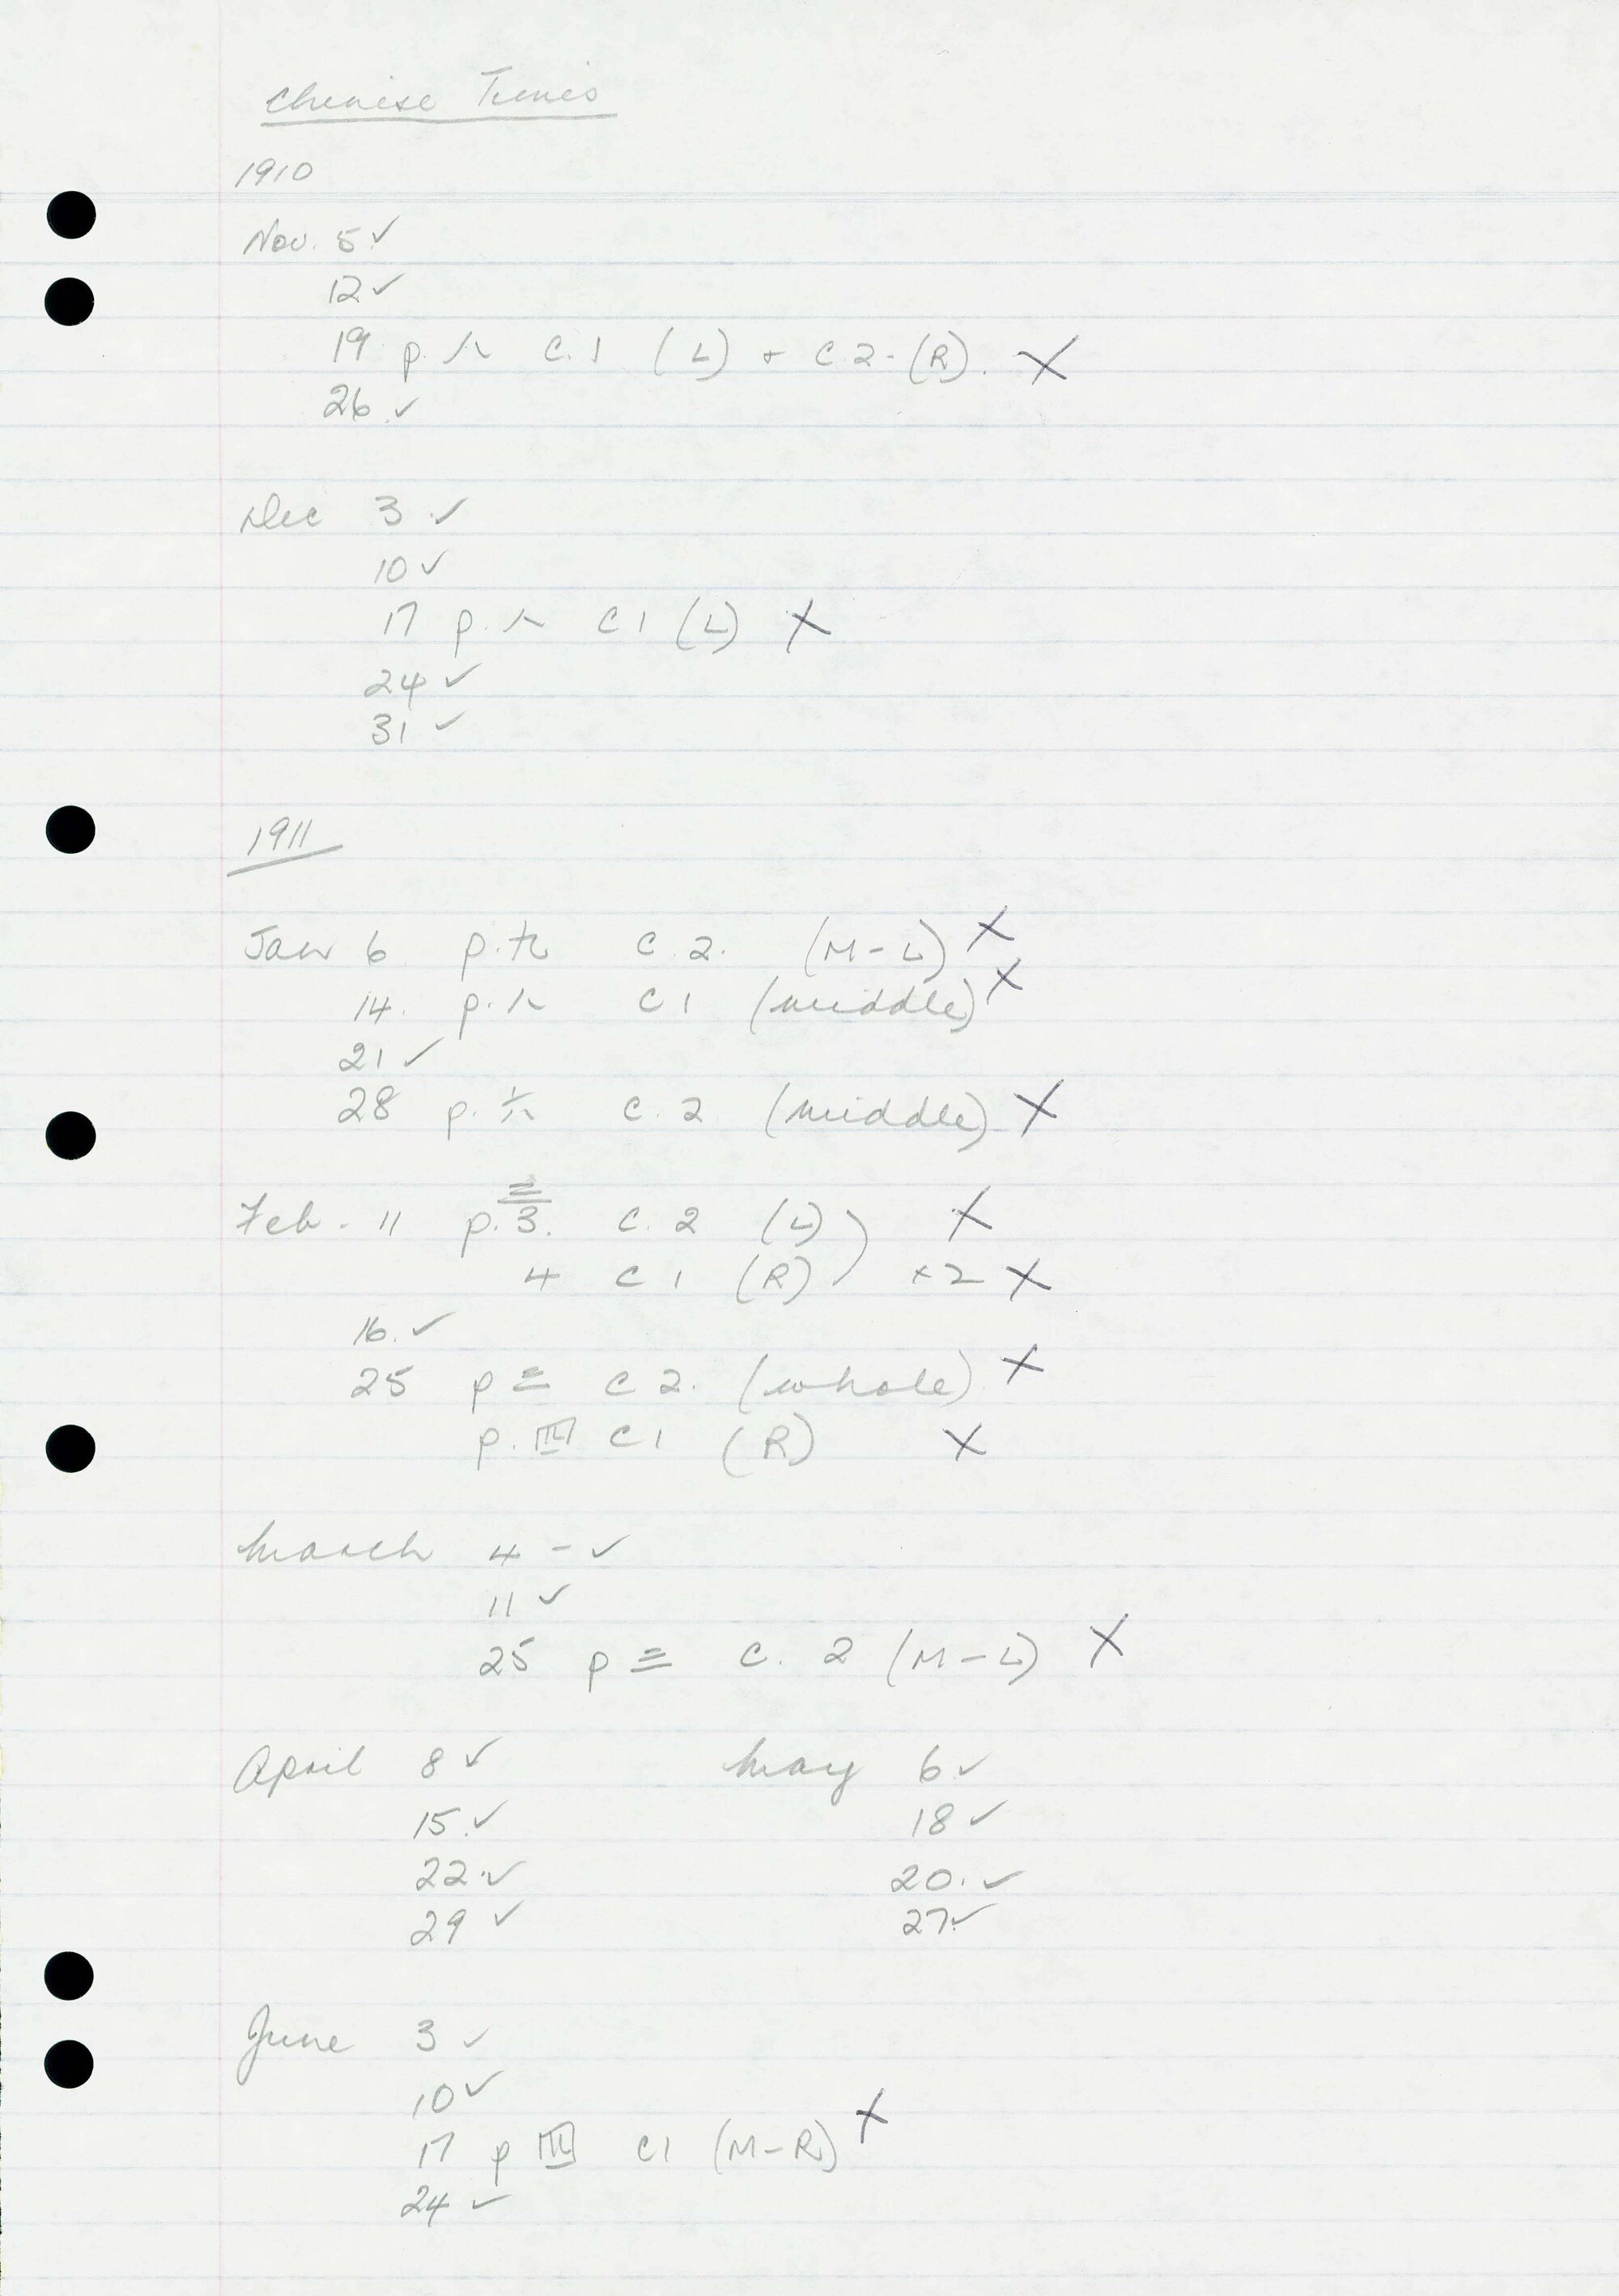 Chinese Times
1910
Nov. 5 ✓
12 ✓
19 p. 八 c. 1 (L) + c 2 - (R). X
26. ✓
Dec 3 ✓
10 ✓
17 p. 八 c 1 (L) X
24 ✓
31 ✓
1911
Jan 6 p. 七 c. 2. (M-L) X
14. p. 八 c 1 (middle) X
21 ✓
28 p. 六 c. 2 (middle) X
Feb. 11 p. 3. 三 c. 2 (L) ) X
4 c 1 (R) ) x2 X
16. ✓
25 p 三 c 2. (whole) X
p. 四 c 1 (R) X
March 4 - ✓
11 ✓
25 p 三 c. 2 (M-L) X
April 8 ✓ May 6 ✓
15. ✓ 18 ✓
22. ✓ 20. ✓
29 ✓ 27. ✓
June 3 ✓
10 ✓
17 p 四 c 1 (M-R) X
24 ✓